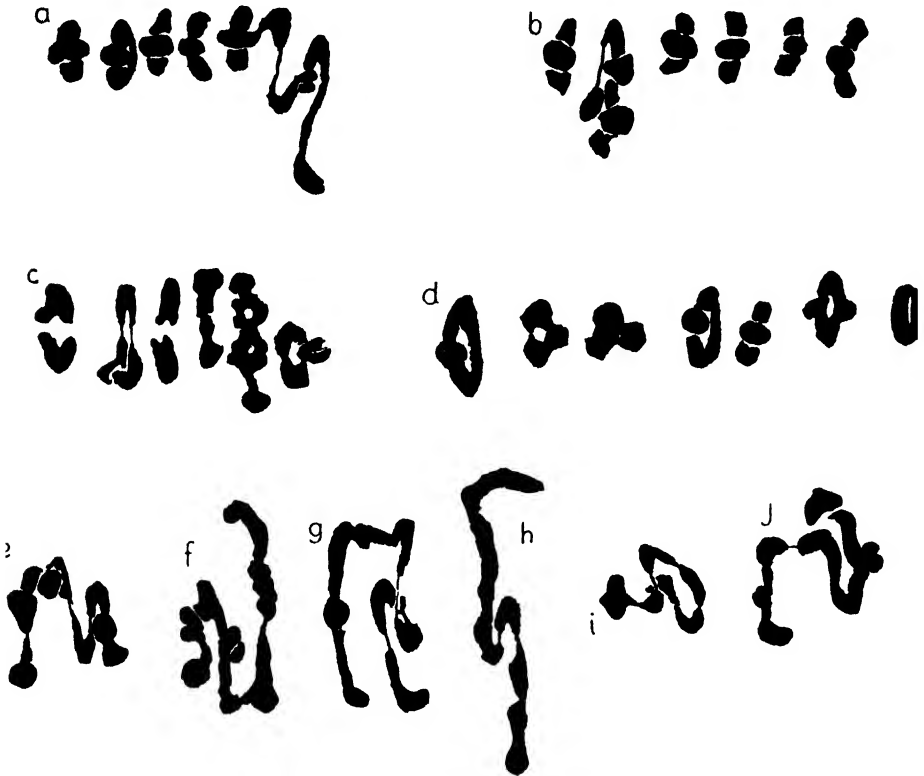 a b
c d
f g h i j